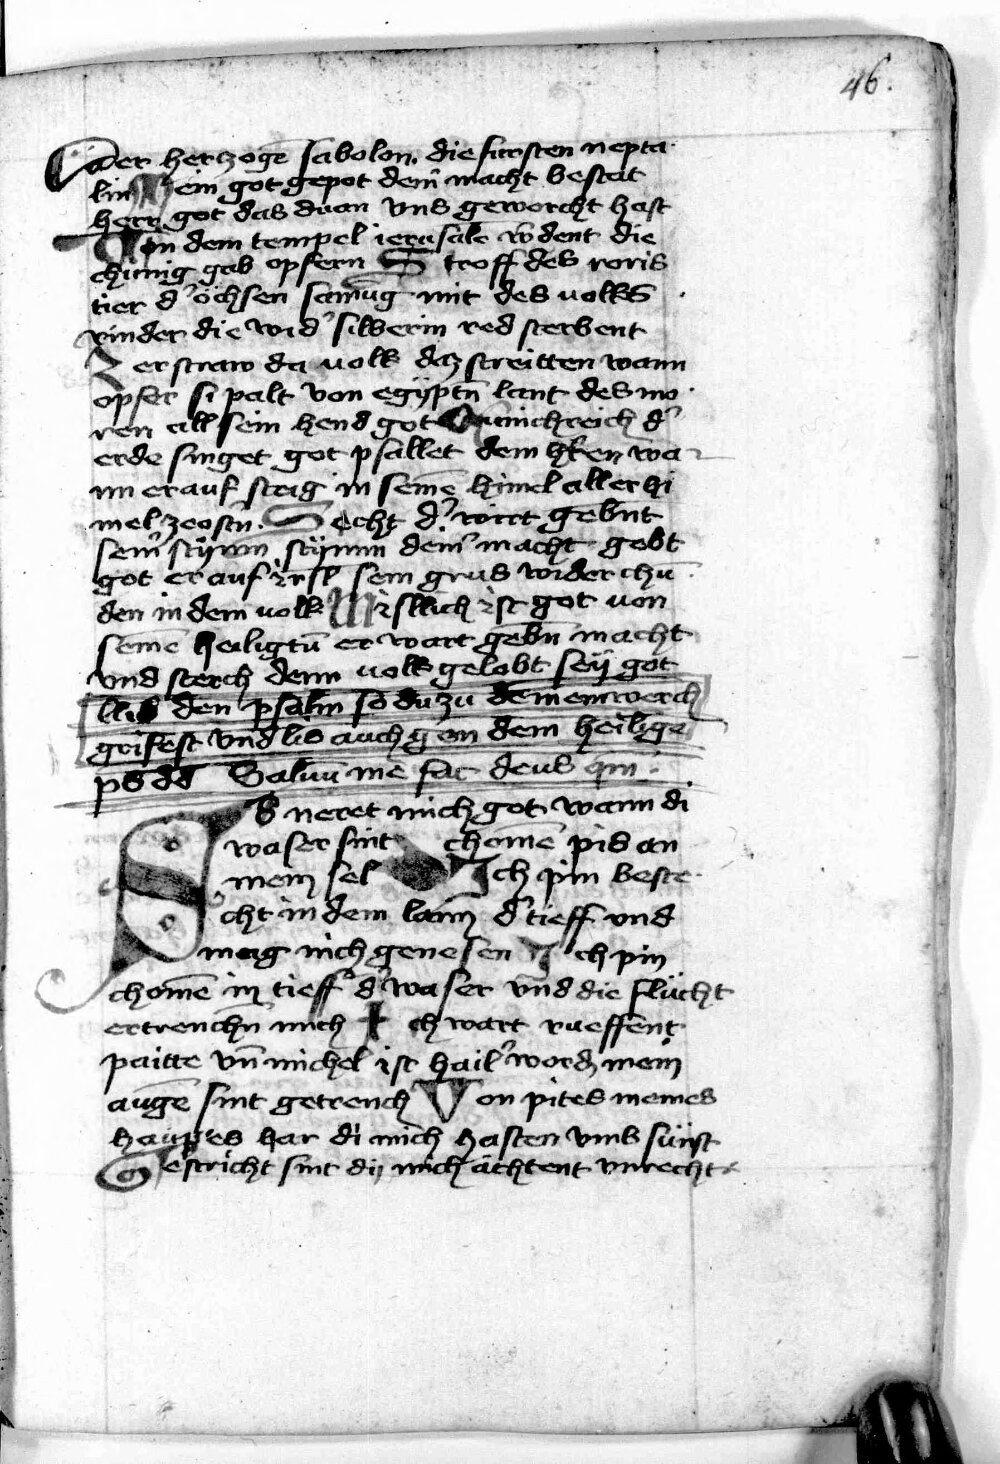 46.
Der herczogē sabolon. die fursten nepta
lin Mein got gepot dem̄ macht bestat
herr got das duan vns geworcht hast
Von dem tempel ierusalē wdent die
chunig gab opfern Stroff des roris
tier d' öchsen samūg mit des volks
rinder die wid' silberin red sterbent
Zerstraw da volk daz streitten wann
opfer si palt von egÿptn̄ lant des mo
ren all sein hend got Kunichreich d'
erde singet got psallet dem hren wa
nn er auf staig in seinē himel aller hi
mel ze ostn̄. Secht d' wirt gebnt
sein' stÿmm stÿmm dein' macht gebt
got er auf isrl sein grus wider chū
den in dem volk Wislich ist got von
seinē heiligtū er wart gebn̄ macht
vnd sterch dem volk gelobt seÿ got
llis den psalm so du zu deinem werch
greifest vnd lis auch gein dem heilige
ps dd Saluū me fac deus qm
S neret mich got wann di
waser sint chomē pis an
mein sel Ich pin beste
cht in dem laim d' tieff vnd
mag nich genesen Ich pin
chomē in tieff d' waser vnd die flücht
ertrenchn̄ mich Ich wart rueffent
paitte vn̄ michel ist hail' word mein
augē sint getrench Von pites meines
haupes har di mich hasten vmb sünst
Gestricht sint dij mich ächtent vnrecht